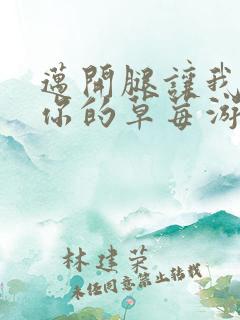 邁開腿讓我
你的草莓游
林建荣
未经同意禁止转载